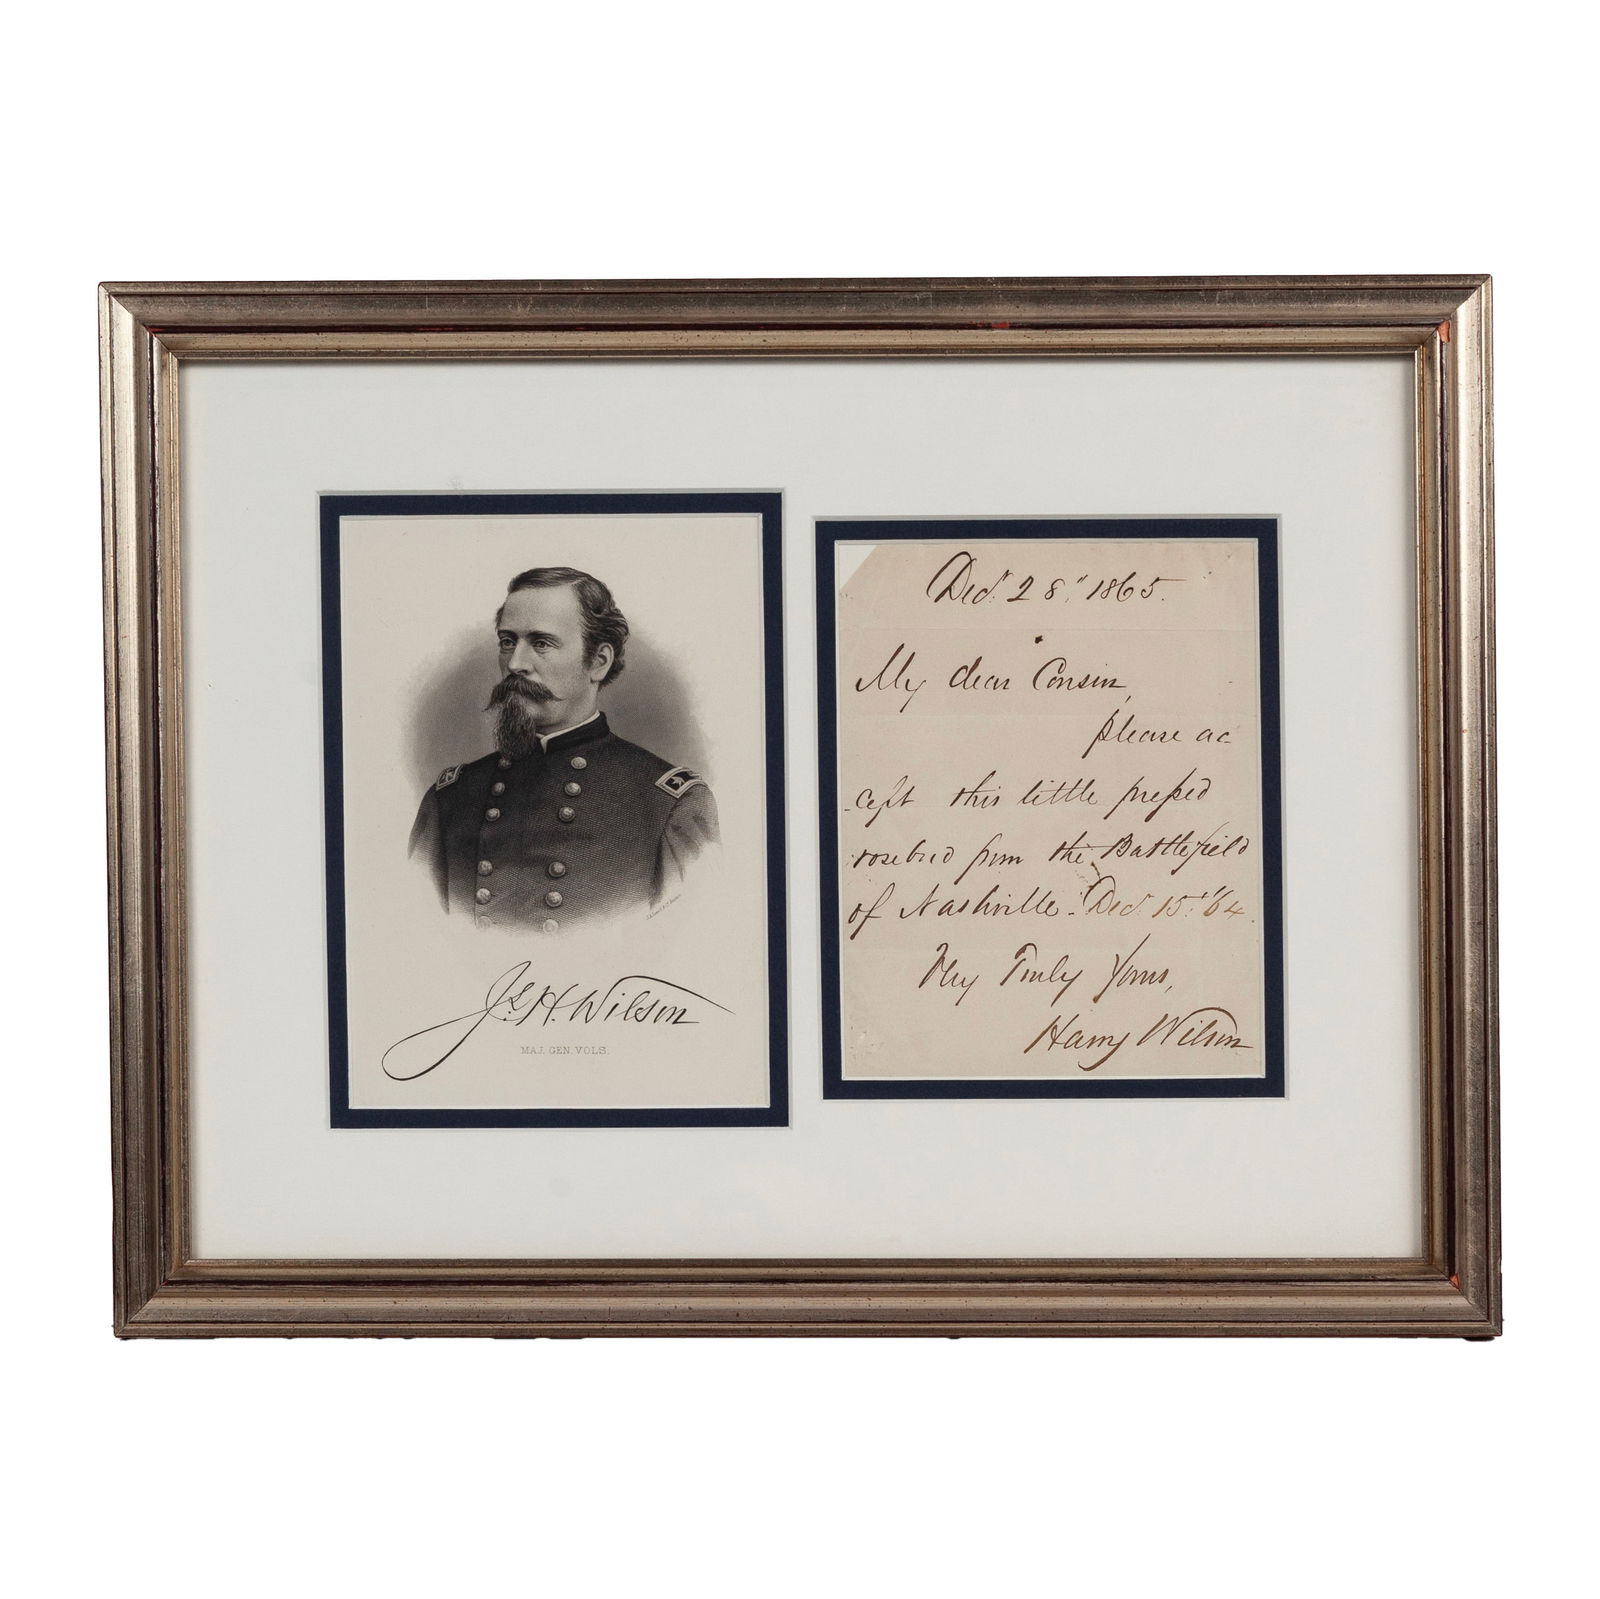 Js. H. Wilson
MAJ. GEN. VOLS.
Decr. 28", 1865.
My dear Cousin,
please ac
-cept this little pressed
rosebud from the Battlefield
of Nashville. Decr. 15", '64.
Very Truly Yours,
Harry Wilson